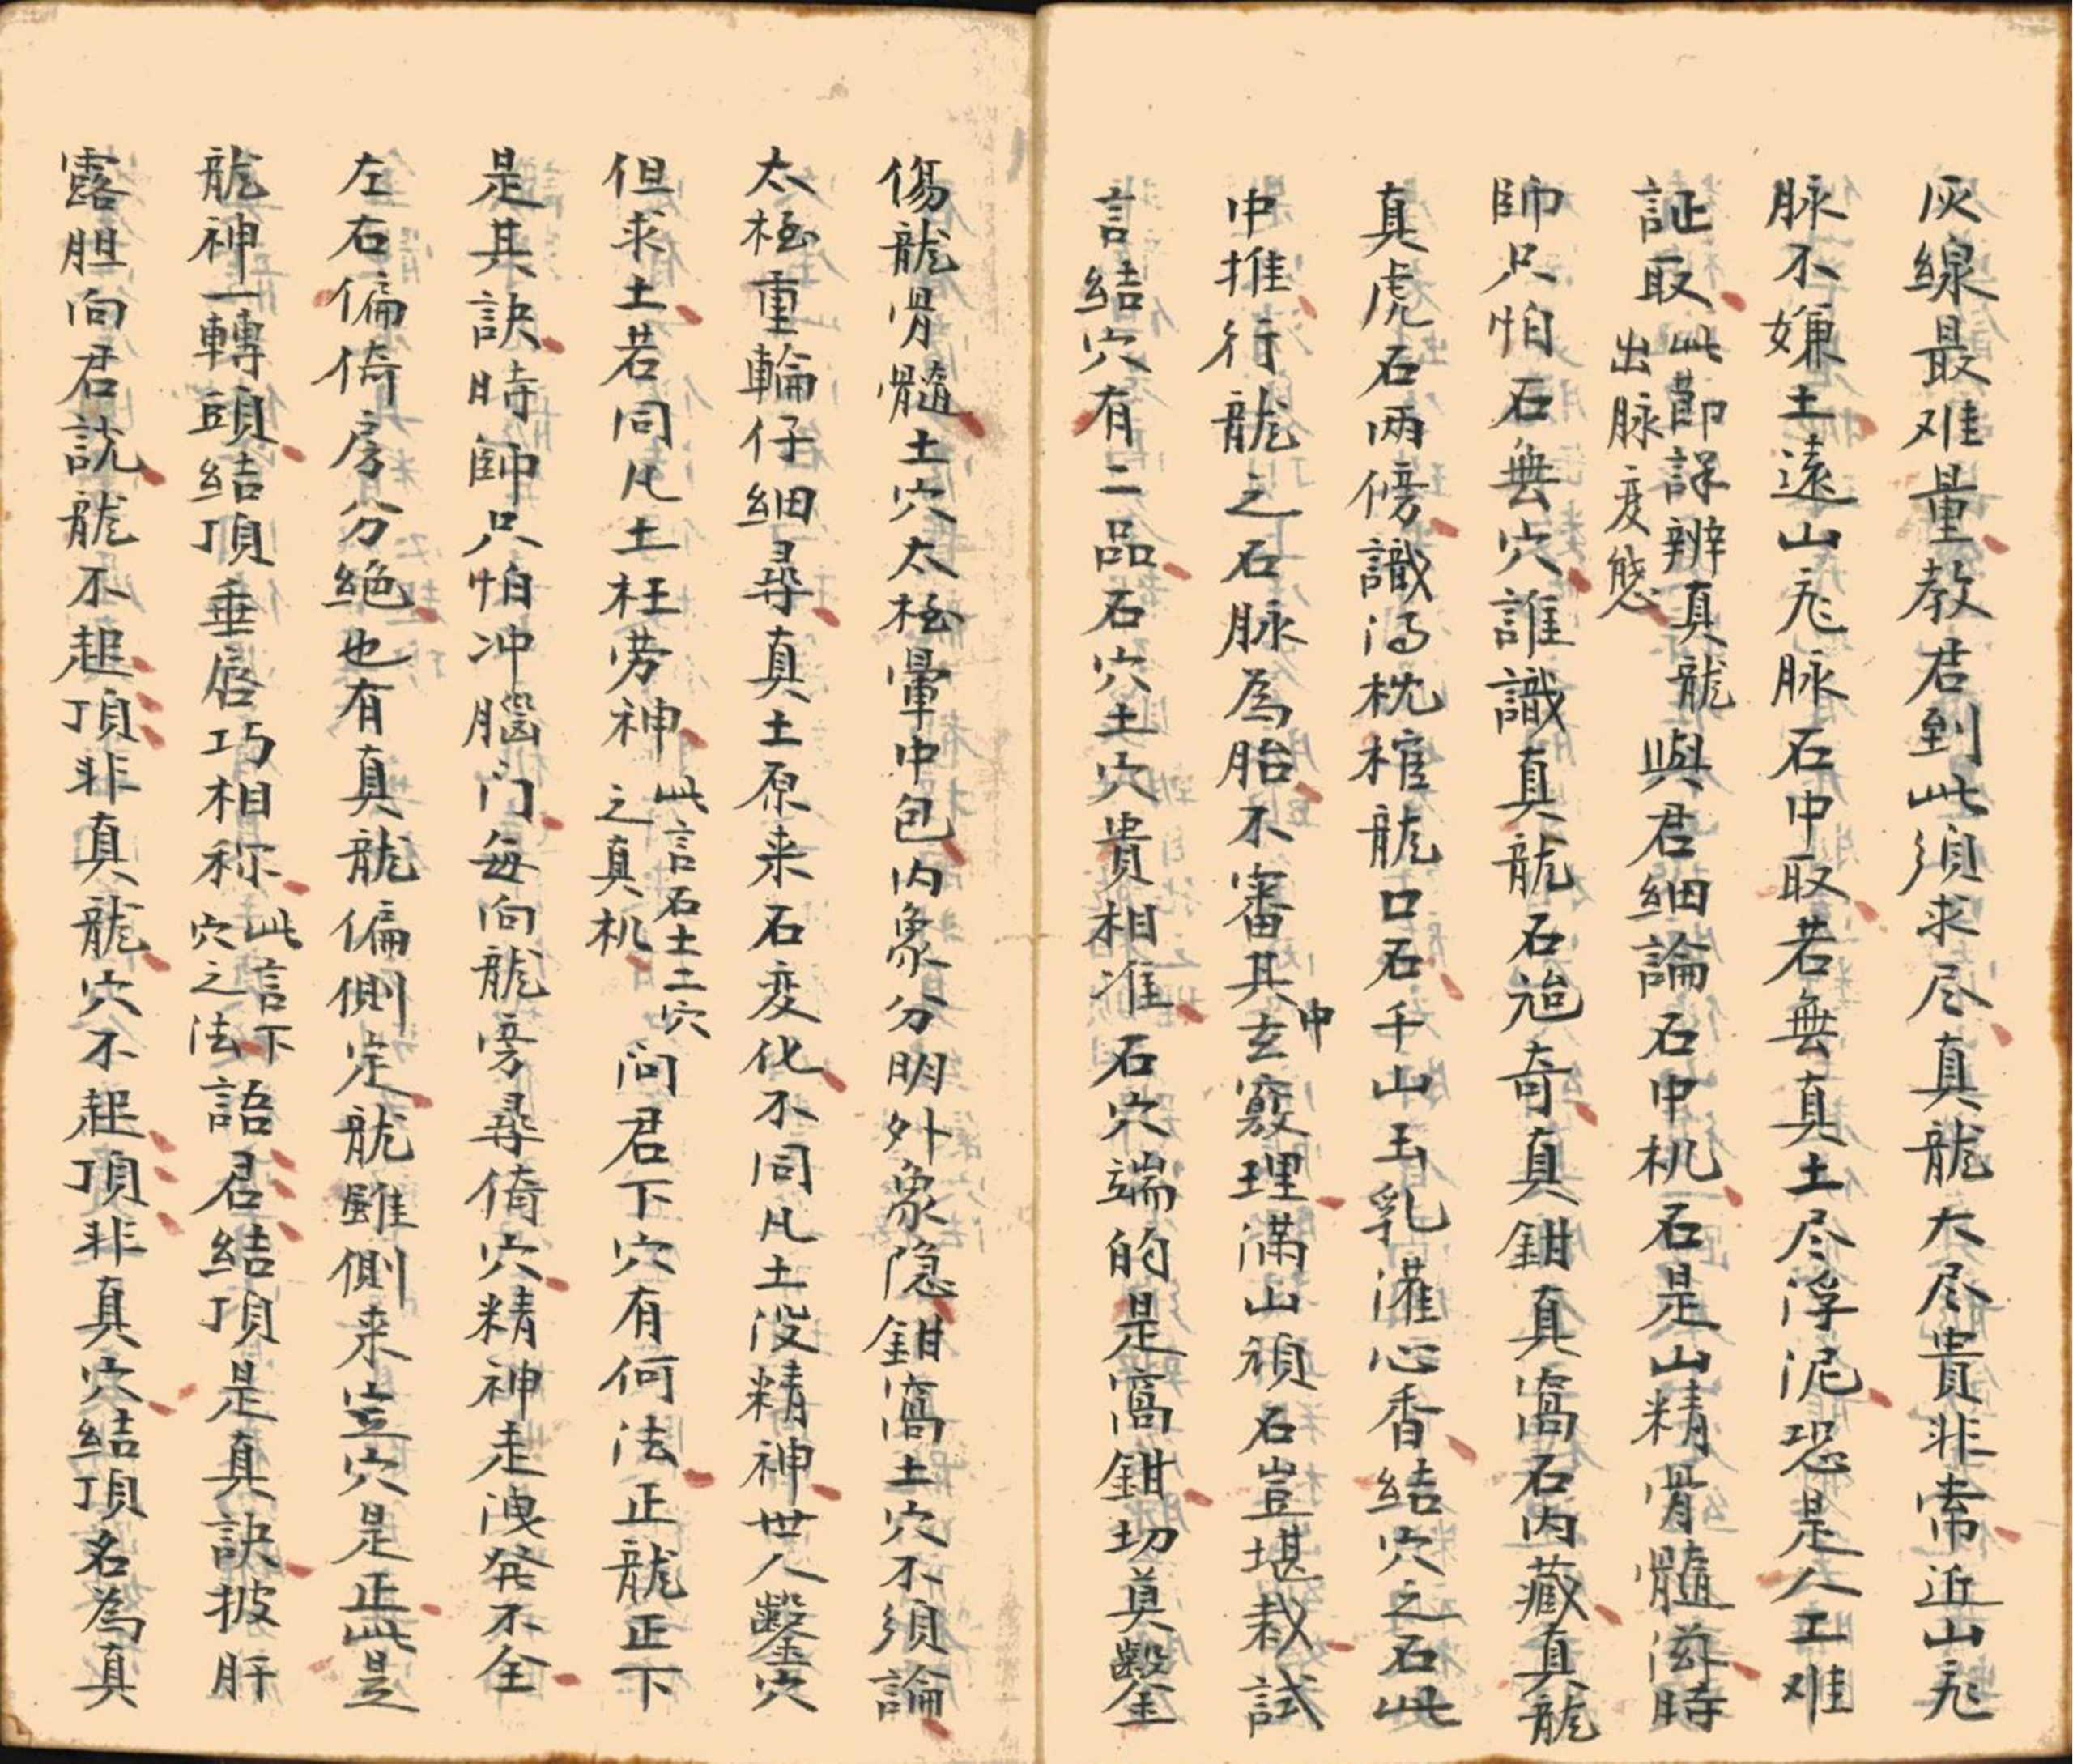 灰線最难量教君到此須求尽真龍大尽貴非常近山尨
脉不嫌土遠山尨脉石中取若無真土尽浮泥恐是人工难
証取此節詳辨真龍出脉变態與君細論石中机石是山精骨髓滋時
師只怕石無穴誰識真龍石迨奇真鉗真窩石内藏真龍
真虎石両傍識得枕棺龍口石千山玉乳灌心香結穴之石此
中推行龍之石脉為胎不審其中玄竅理滿山頑石豈堪裁試
言結穴有二品石穴土穴貴相准石穴端的是窩鉗切莫鑿
傷龍骨髓土穴太极暈中包内象分明外象隐鉗窩土穴不須論
太极重輪仔細尋真土原来石变化不同凡土没精神世人鑿穴
但求土若同凡土枉劳神此言石土二穴之真机问君下穴有何法正龍正下
是其訣時師只怕冲腦门每向龍旁尋倚穴精神走洩発不全
左右偏倚房分絶也有真龍偏側定龍雖側来定穴是正此是
龍神一轉頭結頂垂唇巧相称此言下穴之法語君結頂是真訣披肝
露胆向君説龍不起頂非真龍穴不起頂非真穴結頂名為真